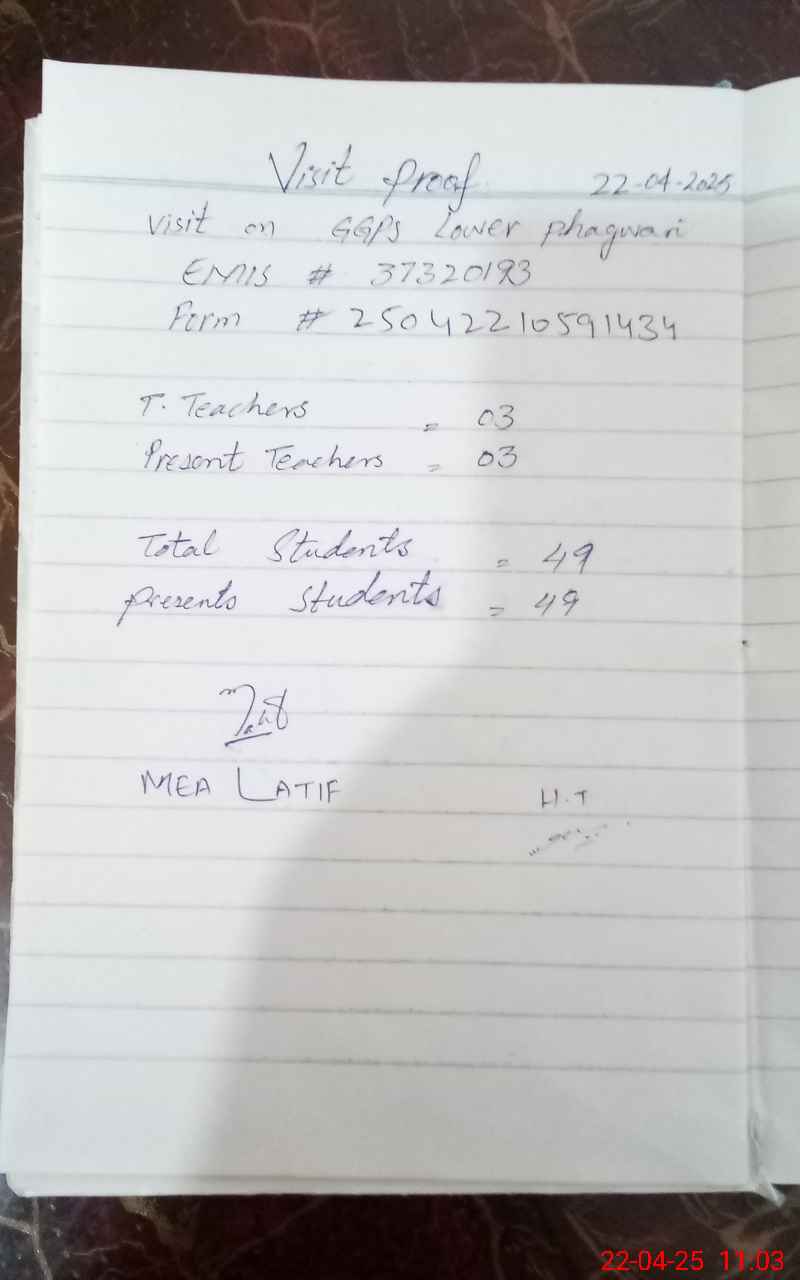 Visit Proof 22-04-2025
Visit on GGPS Lower Phagwari
EMIS # 37320193
Form # 25042210591434
T. Teachers = 03
Present Teachers = 03
Total Students = 49
Presents Students = 49
MEA LATIF H.T
22-04-25 11.03